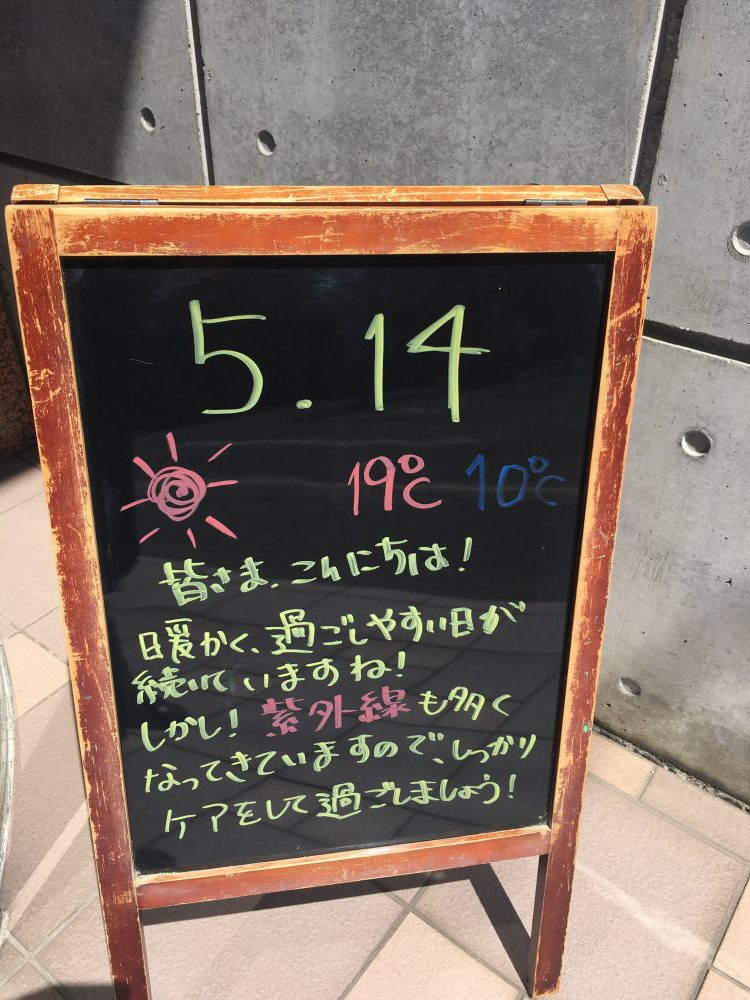 5.14
19℃ 10℃
皆さま、こんにちは!
暖かく、過ごしやすい日が
続いていますね!
しかし!紫外線も多く
なってきていますので、しっかり
ケアをして過ごしましょう!